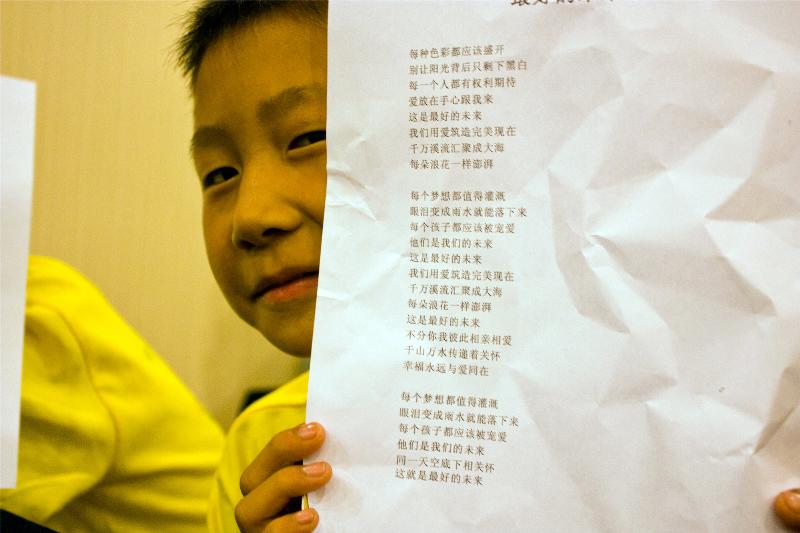 每种色彩都应该盛开
别让阳光背后只剩下黑白
每一个人都有权利期待
爱放在手心跟我来
这是最好的未来
我们用爱筑造完美现在
千万溪流汇聚成大海
每朵浪花一样澎湃
每个梦想都值得灌溉
眼泪变成雨水就能落下来
每个孩子都应该被宠爱
他们是我们的未来
这是最好的未来
我们用爱筑造完美现在
千万溪流汇聚成大海
每朵浪花一样澎湃
这是最好的未来
不分你我彼此相亲相爱
千山万水传递着关怀
幸福永远与爱同在
每个梦想都值得灌溉
眼泪变成雨水就能落下来
每个孩子都应该被宠爱
他们是我们的未来
同一天空底下相关怀
这就是最好的未来